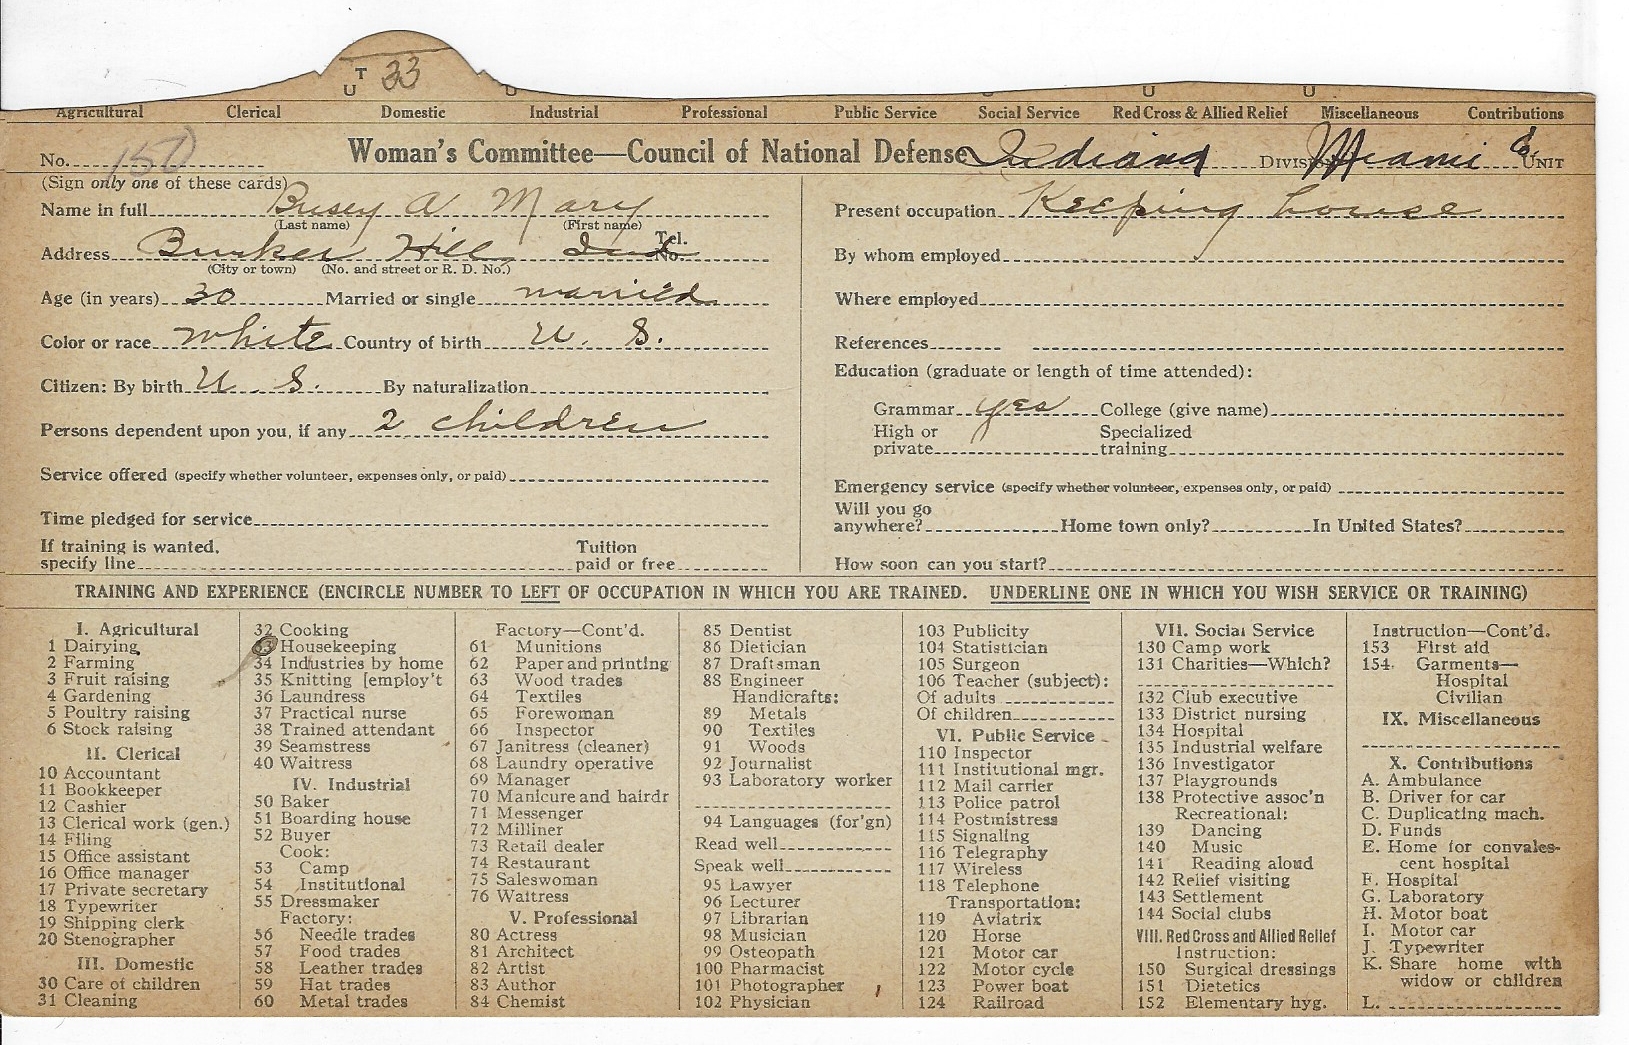 T 33
U U U U U
Agricultural Clerical Domestic Industrial Professional Public Service Social Service Red Cross & Allied Relief Miscellaneous Contributions
No. 150 Woman's Committee—Council of National Defense Indiana DIVISION Miami Co. UNIT
(Sign only one of these cards)
Name in full Busey A Mary
(Last name) (First name)
Address Bunker Hill, Ind Tel. No.
(City or town) (No. and street or R. D. No.)
Age (in years) 30 Married or single married
Color or race White Country of birth U. S.
Citizen: By birth U. S. By naturalization
Persons dependent upon you, if any 2 children
Service offered (specify whether volunteer, expenses only, or paid)
Time pledged for service
If training is wanted, Tuition
specify line paid or free
Present occupation Keeping house
By whom employed
Where employed
References
Education (graduate or length of time attended):
Grammar yes College (give name)
High or Specialized
private training
Emergency service (specify whether volunteer, expenses only, or paid)
Will you go
anywhere? Home town only? In United States?
How soon can you start?
TRAINING AND EXPERIENCE (ENCIRCLE NUMBER TO LEFT OF OCCUPATION IN WHICH YOU ARE TRAINED. UNDERLINE ONE IN WHICH YOU WISH SERVICE OR TRAINING)
I. Agricultural
1 Dairying
2 Farming
3 Fruit raising
4 Gardening
5 Poultry raising
6 Stock raising
II. Clerical
10 Accountant
11 Bookkeeper
12 Cashier
13 Clerical work (gen.)
14 Filing
15 Office assistant
16 Office manager
17 Private secretary
18 Typewriter
19 Shipping clerk
20 Stenographer
III. Domestic
30 Care of children
31 Cleaning
32 Cooking
33 Housekeeping
34 Industries by home
35 Knitting [employ't
36 Laundress
37 Practical nurse
38 Trained attendant
39 Seamstress
40 Waitress
IV. Industrial
50 Baker
51 Boarding house
52 Buyer
Cook:
53 Camp
54 Institutional
55 Dressmaker
Factory:
56 Needle trades
57 Food trades
58 Leather trades
59 Hat trades
60 Metal trades
Factory—Cont'd.
61 Munitions
62 Paper and printing
63 Wood trades
64 Textiles
65 Forewoman
66 Inspector
67 Janitress (cleaner)
68 Laundry operative
69 Manager
70 Manicure and hairdr
71 Messenger
72 Milliner
73 Retail dealer
74 Restaurant
75 Saleswoman
76 Waitress
V. Professional
80 Actress
81 Architect
82 Artist
83 Author
84 Chemist
85 Dentist
86 Dietician
87 Draftsman
88 Engineer
Handicrafts:
89 Metals
90 Textiles
91 Woods
92 Journalist
93 Laboratory worker
94 Languages (for'gn)
Read well
Speak well
95 Lawyer
96 Lecturer
97 Librarian
98 Musician
99 Osteopath
100 Pharmacist
101 Photographer
102 Physician
103 Publicity
104 Statistician
105 Surgeon
106 Teacher (subject):
Of adults
Of children
VI. Public Service
110 Inspector
111 Institutional mgr.
112 Mail carrier
113 Police patrol
114 Postmistress
115 Signaling
116 Telegraphy
117 Wireless
118 Telephone
Transportation:
119 Aviatrix
120 Horse
121 Motor car
122 Motor cycle
123 Power boat
124 Railroad
VII. Social Service
130 Camp work
131 Charities—Which?
132 Club executive
133 District nursing
134 Hospital
135 Industrial welfare
136 Investigator
137 Playgrounds
138 Protective assoc'n
Recreational:
139 Dancing
140 Music
141 Reading aloud
142 Relief visiting
143 Settlement
144 Social clubs
VIII. Red Cross and Allied Relief
Instruction:
150 Surgical dressings
151 Dietetics
152 Elementary hyg.
Instruction—Cont'd.
153 First aid
154 Garments—
Hospital
Civilian
IX. Miscellaneous
X. Contributions
A. Ambulance
B. Driver for car
C. Duplicating mach.
D. Funds
E. Home for convales-
cent hospital
F. Hospital
G. Laboratory
H. Motor boat
I. Motor car
J. Typewriter
K. Share home with
widow or children
L.